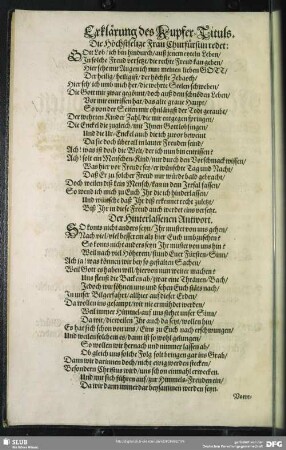 Erklärung des Kupfer-Tituls.
Die Höchstseelige Frau Churfürstin redet:
Gott Lob/ ich bin hindurch/ auß
In solche Freud versetzt/ die rechte Freud kan geben/
Hier sehe mit Augen ich nur meinen lieben GOTT/
Der heilig/ heiligst/ der höchste Zebaoth/
Hier seh ich umb mich her/ die
Die Gott nur zwar gegönnt/ doch auß dem schnöden Leben/
Vor mir entrissen hat/ das alte graue Haupt/
So von der Seiten mir ohnlängst der Todt geraubt/
Der wehrten Kinder Zahl/ die mir entgegen springen/
Die Enckel die zugleich/ mit Ihnen Gott lobsingen/
Und die Uhr-Enckel auch die ich zuvor beweint
Da sie doch über all in lauter Freuden seind/
Ach! was ist doch die Welt/ der ich nun bin entrissen!
Ach! solt ein Menschen-Kind/ nur durch den Vorschmack wissen/
Was hier vor Freude sey/ er wünschte Tag und Nacht/
Daß Er zu solcher Freud nur würde bald gebracht/
Doch weilen diß kein Mensch/ kan in dem Irrsal fassen/
So wend ich mich zu Euch Ihr die ich hinderlassen/
Und wünsche daß Ihr diß erkennet recht zuletzt/
Biß Ihr in diese Freud auch werdet eins versetzt.
Der Hinterlassenen Antwort.
So konts nicht anders seyn/ Ihr mustet von uns gehen/
Nach viel/ viel besser als alle hier Euch umbzusehen!
So konts nicht anders seyn Ihr mustet von uns hin!
Weil nach viel höherem/ stund Euer Fürsten-Sinn/
Ach ja! was können wir bey so gestalten Sachen/
Weil Gott es haben will/ hiervon nun weiter machen!
Uns fleust die Backen ab/ zwar eine Thränen-Bach/
Jedoch wir söhnen uns und sehen Euch stäts nach/
In unser Bilgerfahrt/ allhier auf dieser Erden/
Da wollen ins gesampt/ wir nie ermüdet werden/
Weil immer Himmel-auf uns stehet unser Sinn/
Da wir/ die weilen Ihr auch da seyt/ wollen hin/
Es hat sich schon von uns/ Eins zu Euch nach erschwungen/
Und weilen solches es/ dann ist so wohl gelungen/
So wollen wir hernach und nimmer lassen ab/
Ob gleich uns solche Folg solt bringen gar ins Grab/
Dann wir darinnen doch/ nicht ewig werden stecken/
Besondern Christus wird/ uns schon einmahl erwecken.
Und mit sich führen auf/ zur Himmels-Freuden ein/
Da wir dann immerdar beysammen werden seyn.
SLUB
DFG